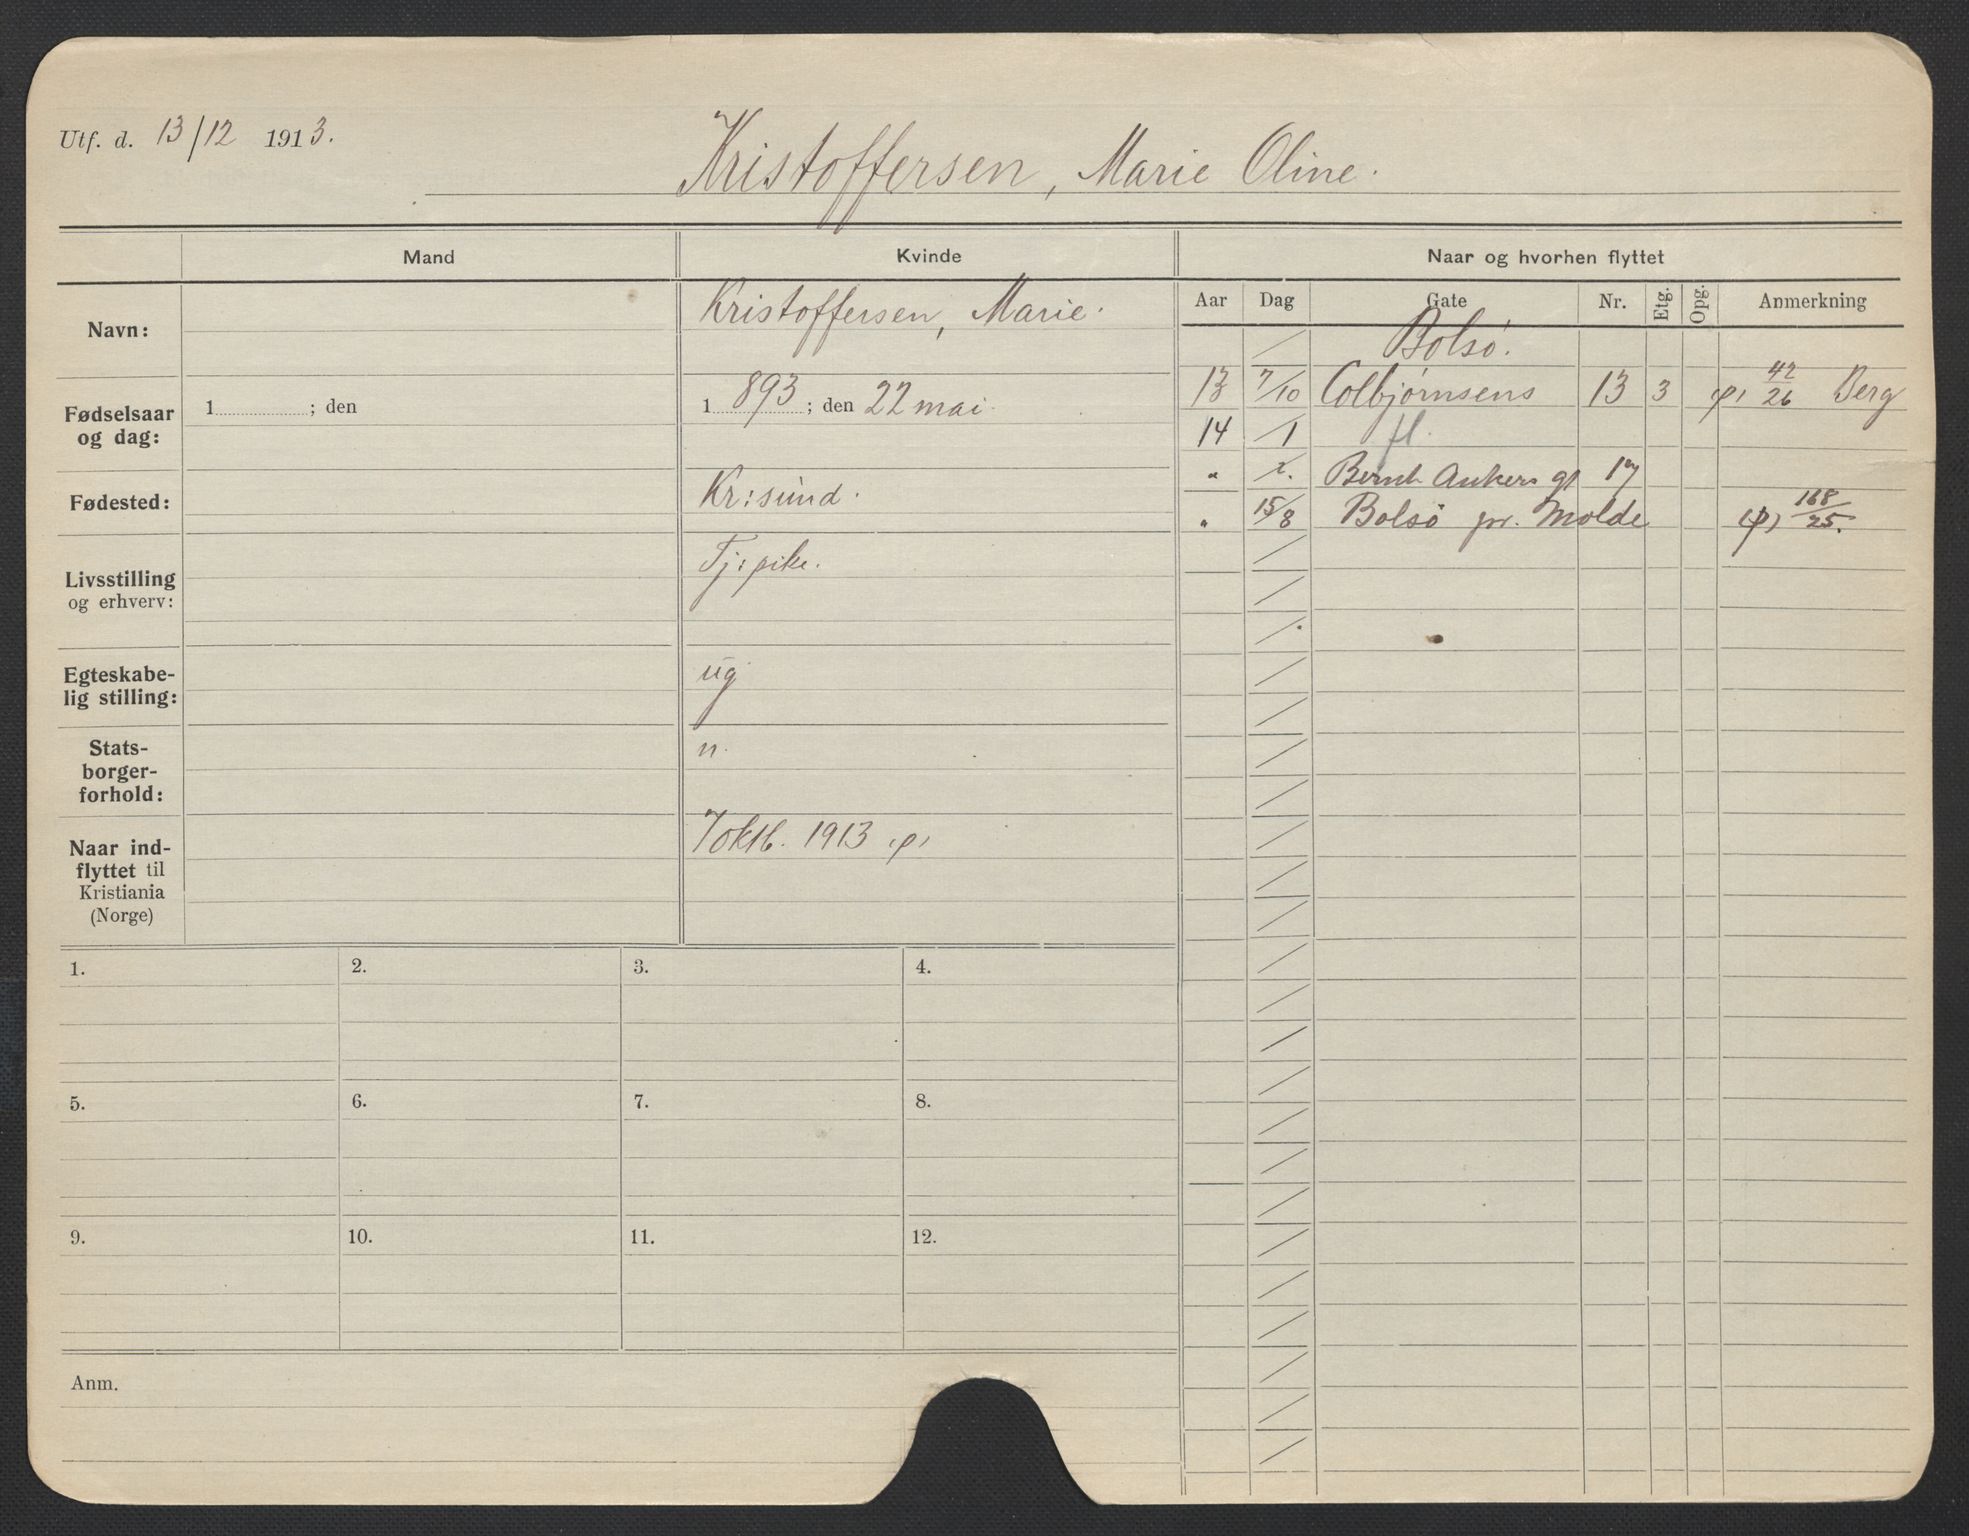 Utf. d. 13/12 1913.
Kristoffersen, Marie Oline.
Mand Kvinde Naar og hvorhen flyttet
Aar Dag Gate Nr. Etg. Opg. Anmerkning
Navn: Kristoffersen, Marie.
Fødselsaar og dag: 1 ; den 1 893 ; den 22 mai.
Fødested: Kr:sund.
Livsstilling og erhverv: Tj:pike.
Egteskabelig stilling: ug
Statsborgerforhold: n.
Naar indflyttet til Kristiania (Norge) 7 oktb. 1913 (p)
/ Bolsø.
13 7/10 Colbjørnsens 13 3 (p) 42/26 Berg
14 /1 fl.
" Bernh. Ankers gt 17
" 15/8 Bolsø pr. Molde (p) 168/25.
1. 2. 3. 4.
5. 6. 7. 8.
9. 10. 11. 12.
Anm.